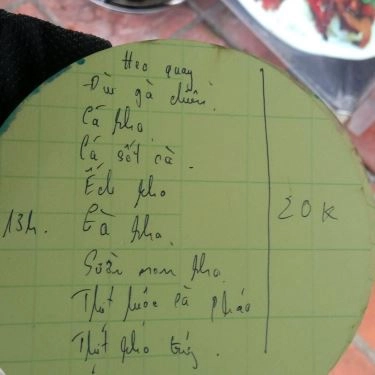 Heo quay
Đùi gà chiên
Cá kho
Cá sốt cà
Ếch kho
13h. Gà kho 20K
Sườn non kho
Thịt luộc cà pháo
Thịt kho trứng